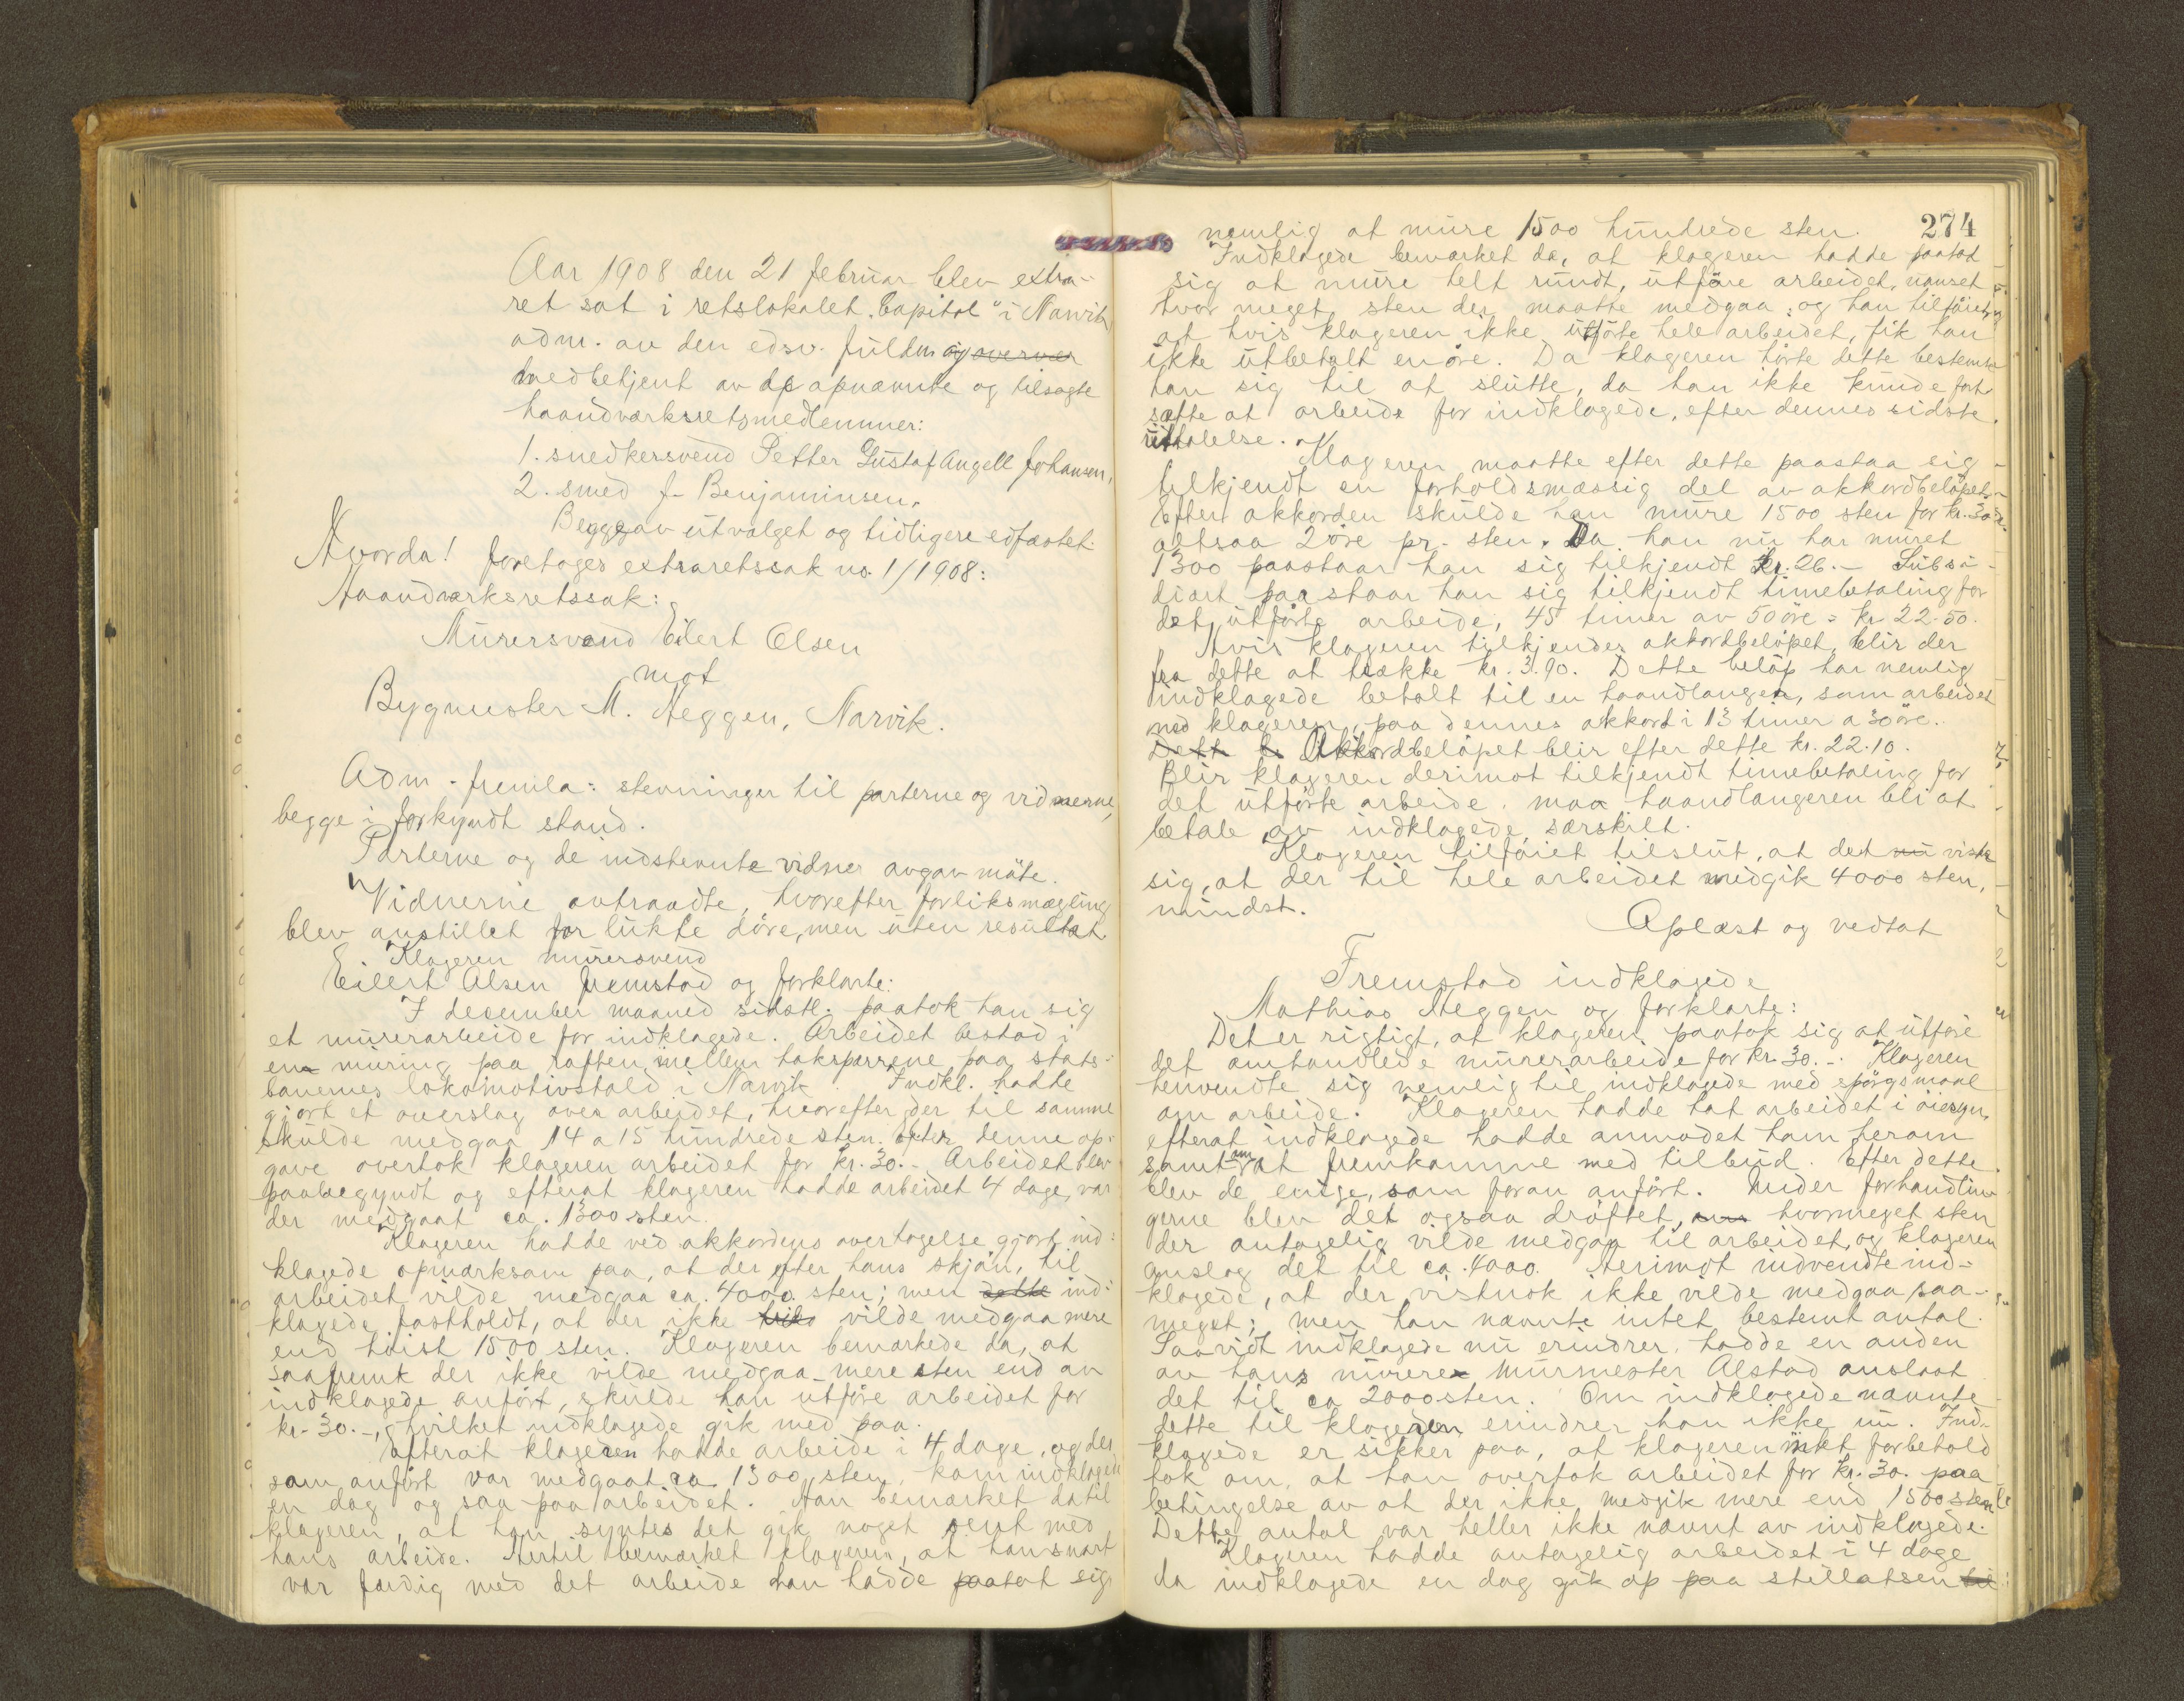 Aar 1908 den 21 februar blev extra-
ret sat i retslokalet "Capitol" i Narvik
adm. av den edsv. fuldm. og overvær
medbetjent av de opnævnte og tilsagte
haandværksretsmedlemmer:
1. snedkersvend Petter Gustaf Angell Johansen,
2. smed J. Benjaminsen.
Begge av utvalget og tidligere edfæstet.
Hvorda! foretages extraretssak no. 1/1908:
Haandværksretssak:
Murersvend Eilert Olsen
mot
Bygmester M. Heggen, Narvik.
Adm. fremla: stevninger til parterne og vidnerne,
begge i forkyndt stand.
Parterne og de indstevnte vidner avgav möte.
Vidnerne avtraadte, hvorefter forliksmægling
blev anstillet for lukte döre, men uten resultat.
Klageren murersvend
Eilert Olsen fremstod og forklarte:
I december maaned sidstl. paatok han sig
et murerarbeide for indklagede. Arbeidet bestod i
en muring paa raften mellem taksparrene paa stats-
banernes lokomotivstald i Narvik. Indkl. hadde
gjort et overslag over arbeidet, hvorefter der til samme
skulde medgaa 14 a 15 hundrede sten. Efter denne op-
gave overtok klageren arbeidet for kr. 30.- Arbeidet blev
paabegyndt og efterat klageren hadde arbeidet 4 dage, var
der medgaat ca. 1300 sten.
Klageren hadde ved akkordens overtagelse gjort ind-
klagede opmærksom paa, at der efter hans skjön, til
arbeidet vilde medgaa ca. 4000 sten; men dette ind-
klagede fastholdt, at der ikke vilde medgaa mere
end höist 1500 sten. Klageren bemærkede da, at
saafremt der ikke vilde medgaa mere sten end av
indklagede anfört, skulde han utföre arbeidet for
kr. 30.-, hvilket indklagede gik med paa.
Efterat klageren hadde arbeide i 4 dage, og der
som anfört var medgaat ca 1300 sten, kom indklagede
en dag og saa paa arbeidet. Han bemærket da til
klageren, at han syntes det gik noget sent med
hans arbeide. Hertil bemærket klageren, at han snart
var færdig med det arbeide han hadde paatat sig
274
nemlig at mure 1500 hundrede sten.
Indklagede bemærket da, at klageren hadde paatat
sig at mure helt rundt, utföre arbeidet, uanset
hvor meget sten der maatte medgaa; og han tilföiet,
at hvis klageren ikke utförte hele arbeidet, fik han
ikke utbetalt en öre. Da klageren hörte dette bestemte
han sig til at slutte, da han ikke kunde fort-
sætte at arbeide for indklagede, efter dennes sidste
uttalelse.
Klageren maatte efter dette paastaa sig
tilkjendt en forholdsmæssig del av akkordbelöpet.
Efter akkorden skulde han mure 1500 sten for kr. 30.-
altsaa 2 öre pr. sten. Da han nu har muret
1300 paastaar han sig tilkjendt kr. 26.- Subsi-
diært paastaar han sig tilkjendt timebetaling for
det utförte arbeide, 45 timer av 50 öre = kr 22.50.
Hvis klageren tilkjendes akkordbelöpet, blir der
fra dette at trække kr. 3.90. Dette belöp har nemlig
indklagede betalt til en haandlanger, som arbeidet
med klageren, paa dennes akkord i 13 timer a 30 öre.
Dette be Akkordbelöpet blir efter dette kr. 22.10.
Blir klageren derimot tilkjendt timebetaling for
det utförte arbeide, maa haandlangeren bli at
betale av indklagede særskilt.
Klageren tilföiet tilslut, at det nu viste
sig, at der til hele arbeidet medgik 4000 sten,
mindst.
Oplæst og vedtat
Fremstod indklagede
Mathias Heggen og forklarte:
Det er rigtigt, at klageren paatok sig at utföre
det omhandlede murerarbeide for kr. 30.-. Klageren
henvendte sig nemlig til indklagede med spörgsmaal
om arbeide. Klageren hadde hat arbeidet i öiesyn,
efterat indklagede hadde anmodet ham herom
samt om at fremkomme med tilbud. Efter dette
blev de enige, som foran anfört. Under forhandlin-
gerne blev det ogsaa dröftet, hvormeget sten
der antagelig vilde medgaa til arbeidet, og klageren
anslog det til ca. 4000. Herimot indvendte ind-
klagede, at der vistnok ikke vilde medgaa saa-
meget; men han nævnte intet bestemt antal.
Saavidt indklagede nu erindrer, hadde en anden
av hans murere murmester Alstad anslaat
det til ca 2000 sten. Om indklagede nævnte
dette til klageren erindrer han ikke nu. Ind-
klagede er sikker paa, at klageren intet forbehold
tok om, at han overtok arbeidet for kr. 30. paa
betingelse av at der ikke medgik mere end 1500 sten
Dette antal var heller ikke nævnt av indklagede.
Klageren hadde antagelig arbeidet i 4 dage
da indklagede en dag gik op paa stillatsen til